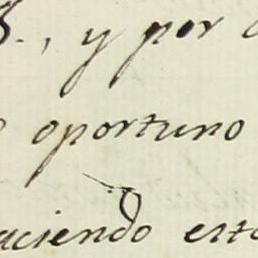 , y por
oportuno
aciendo esto